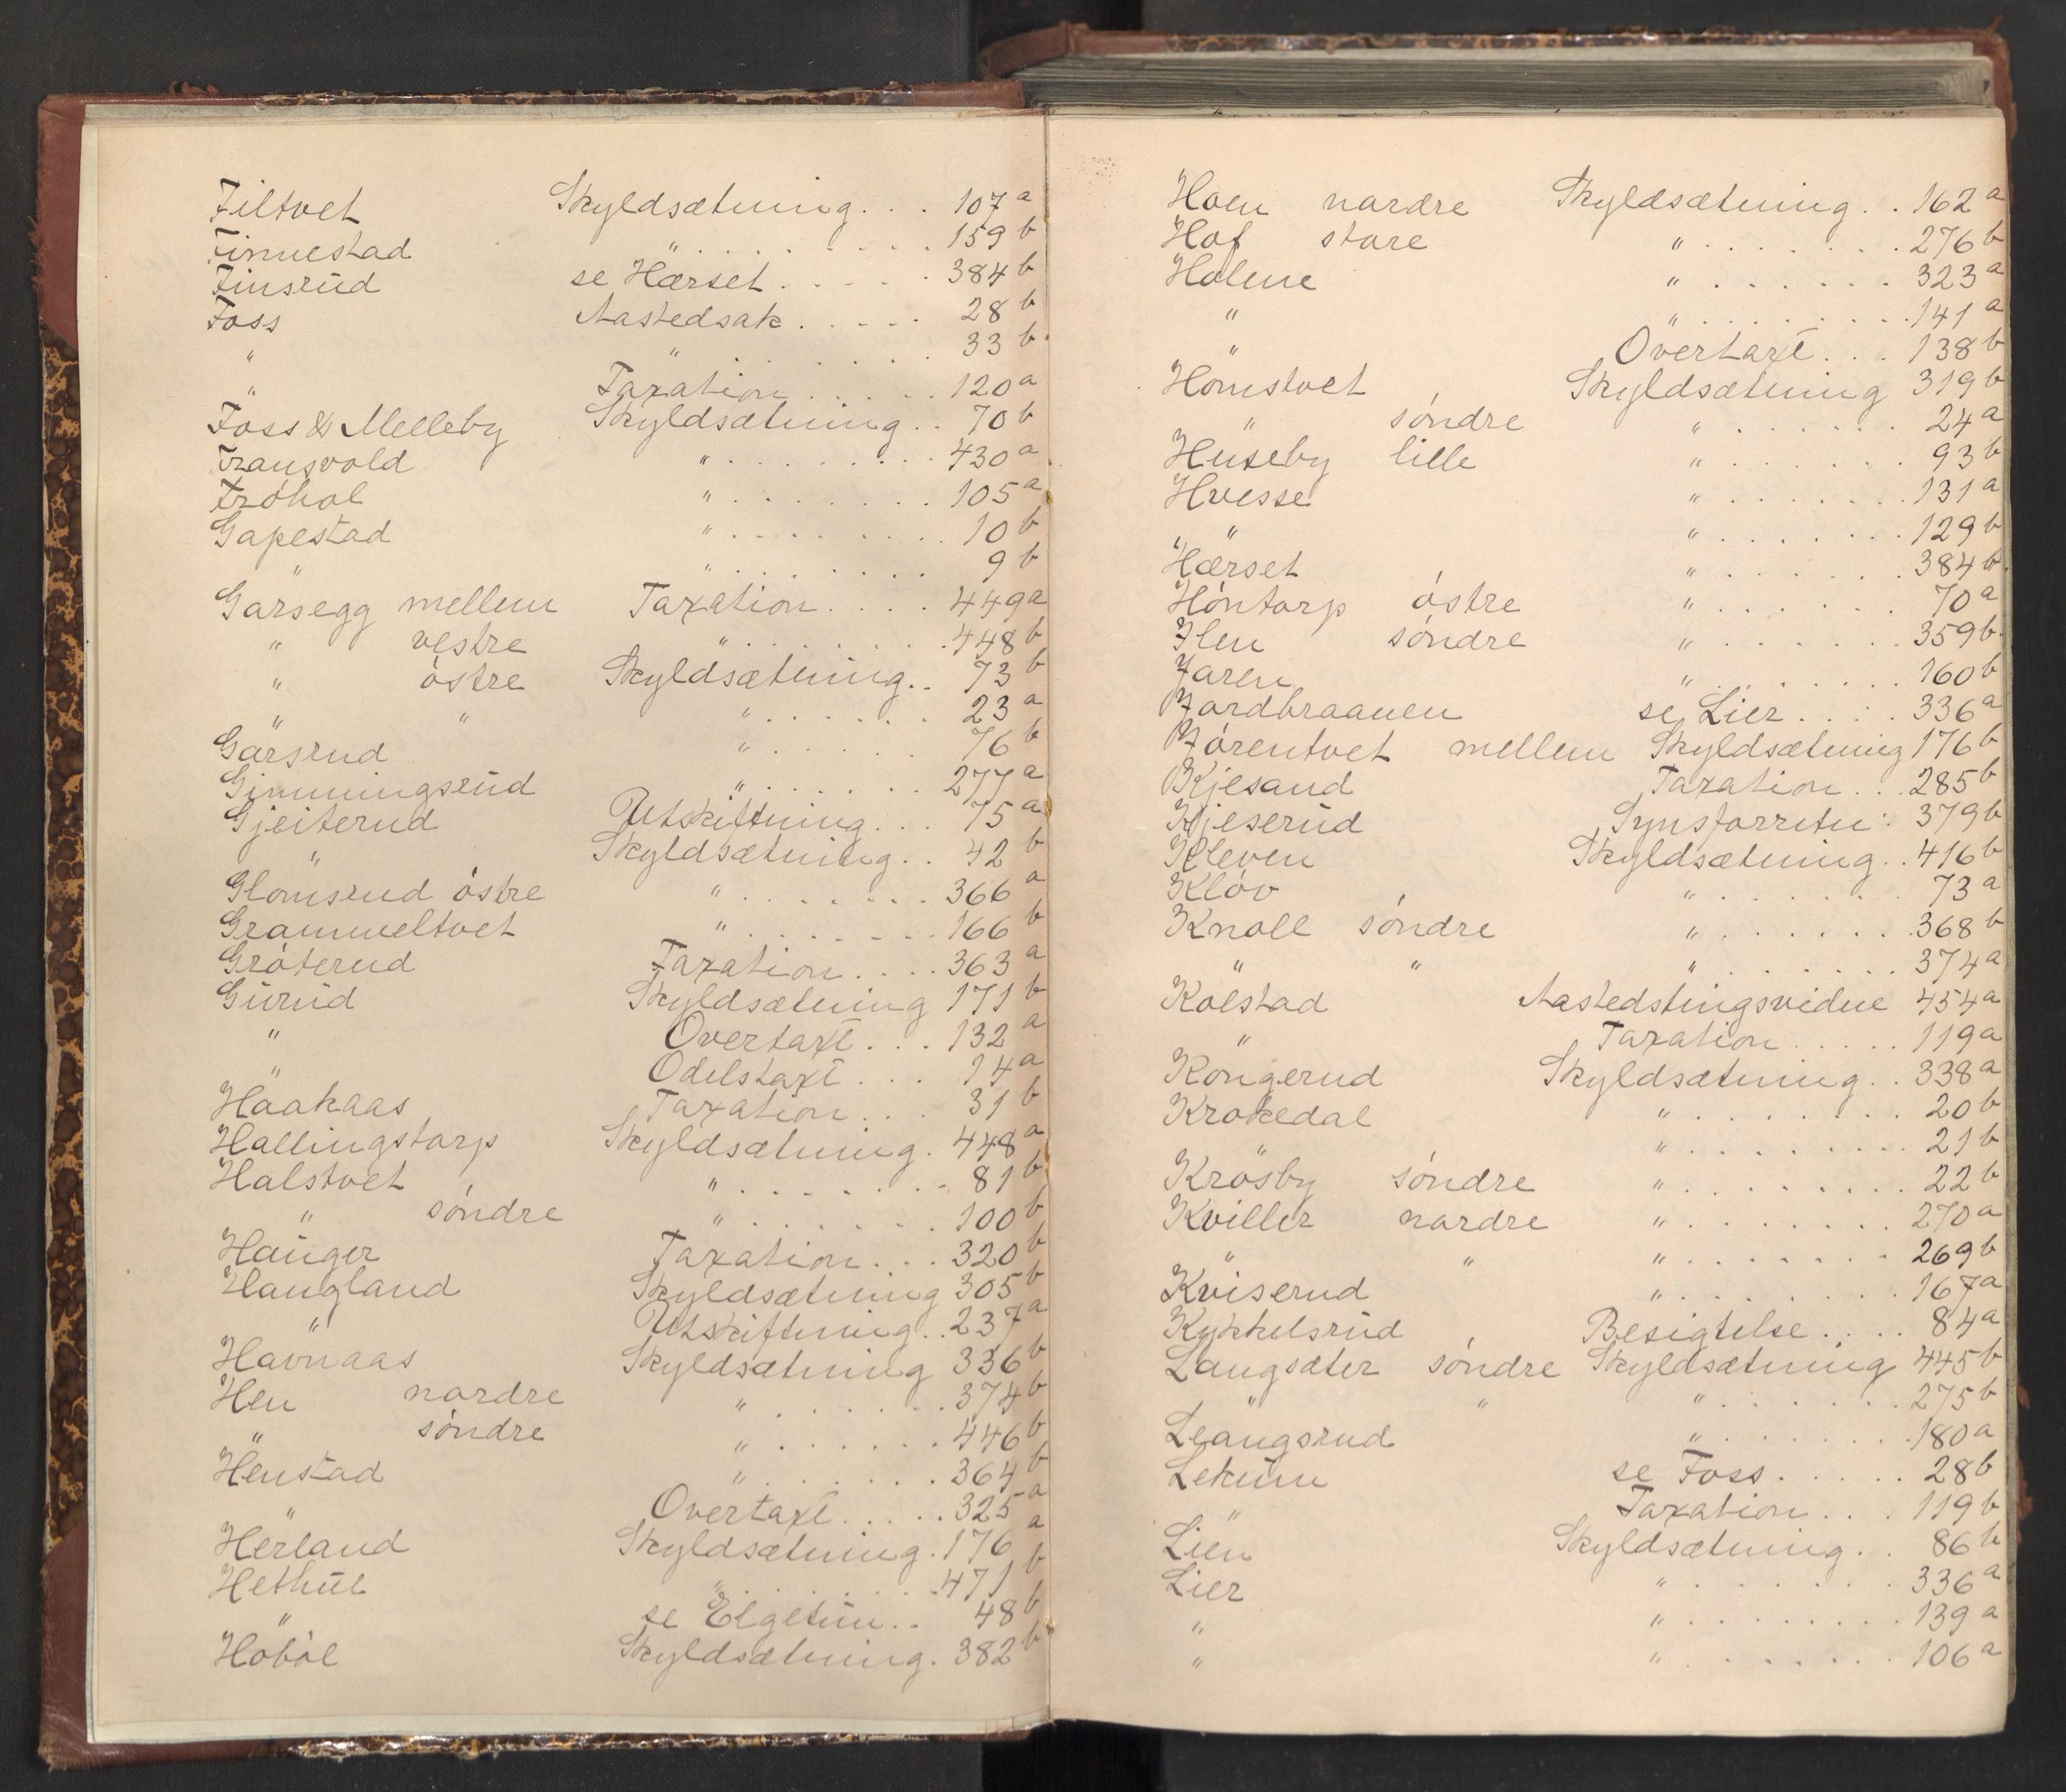 Filtvet Skyldsætning . . . 107 a
Finnestad " . . . . . . . . . 159 b
Finsrud se Hærset . . . . 384 b
Foss Aastedsak . . . . . 28 b
" " . . . . . . . . 33 b
" Taxation . . . . . 120 a
Foss & Melleby Skyldsætning . . 70 b
Frausvold " . . . . . . . . . 430 a
Fróhol " . . . . . . . . 105 a
Gapestad " . . . . . . . . . 10 b
" " . . . . . . . . 9 b
Garsegg mellem Taxation . . . . 449 a
" vestre " . . . . . . . . 448 b
" östre Skyldsætning . . 73 b
" " " . . . . . . 23 a
Garsrud " . . . . . . 76 b
Gimmingsrud " . . . . . . . 277 a
Gjeiterud Utskiftning . . . 75 a
" Skyldsætning . . 42 b
Glomsrud óstre " . . . . . . . . 366 a
Grammeltvet " . . . . . . . . 166 b
Gróterud Taxation . . . . 363 a
Gurud Skyldsætning 171 b
" Overtaxt . . . 132 a
" Odelstaxt . . . 14 a
Haakaas Taxation . . . 31 b
Hallingstorp Skyldsætning . 448 a
Halstvet " . . . . . . . . 81 b
" sóndre " . . . . . . . 100 b
Hauger Taxation . . . 320 b
Haugland Skyldsætning 305 b
" Utskiftning . . 237 a
Havnaas Skyldsætning 336 b
Hen nordre " . . . . . . . 374 b
" sóndre " . . . . . . . 446 b
Henstad " . . . . . . . 364 b
" Overtaxt . . . . . 325 a
Herland Skyldsætning . 176 a
Hethul " . . . . . . . . 471 b
" se Elgetun . . 48 b
Hóból Skyldsætning . 382 b
Hoen nordre Skyldsætning . . 162 a
Hof store " . . . . . . . 276 b
Holme " . . . . . . . 323 a
" " . . . . . . . . . 141 a
" Overtaxt . . . 138 b
Homstvet Skyldsætning 319 b
" sóndre " . . . . . . 24 a
Huseby lille " . . . . . . . 93 b
Hvesse " . . . . . . . 131 a
" " . . . . . . . 129 b
Hærset " . . . . . . . 384 b
Hóntorp óstre " . . . . . . . 70 a
Ilen sóndre " . . . . . . . 359 b
Jaren " . . . . . . . . 160 b
Jordbraanen se Lier . . . . 336 a
Jórentvet mellem Skyldsætning 176 b
Kjesand Taxation . . . 285 b
Kjeserud Synsforretn: 379 b
Kleven Skyldsætning . . 416 b
Klóv " . . . . . . . 73 a
Knoll sóndre " . . . . . . . 368 b
" " " . . . . . . . 374 a
Kolstad Aastedstingsvidne 454 a
" Taxation . . . . . 119 a
Kongerud Skyldsætning . . 338 a
Krokedal " . . . . . . . . 20 b
" " . . . . . . . . . 21 b
Krosby sóndre " . . . . . . . . . 22 b
Kviller nordre " . . . . . . . . 270 a
" " " . . . . . . . . 269 b
Kviserud " . . . . . . . . 167 a
Kykkelsrud Besigtelse . . . . 84 a
Langsæter sóndre Skyldsætning 445 b
" " " . . . . . . . 275 b
Leangsrud " . . . . . . . . 180 a
Lekum se Foss . . . . . 28 b
" Taxation . . . 119 b
Lien Skyldsætning . . 86 b
Lier " . . . . . . . 336 a
" " . . . . . . . . 139 a
" " . . . . . . . . 106 a